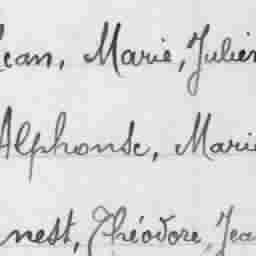 Jean, Marie, Julien
Alphonse, Marie
Ernest, Théodore, Jean